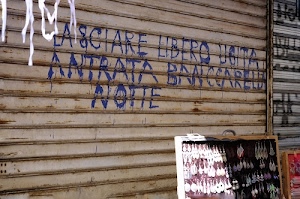 LASCIARE LIBERO USCITA
ANTRATA BANCCARELLE
NOTTE